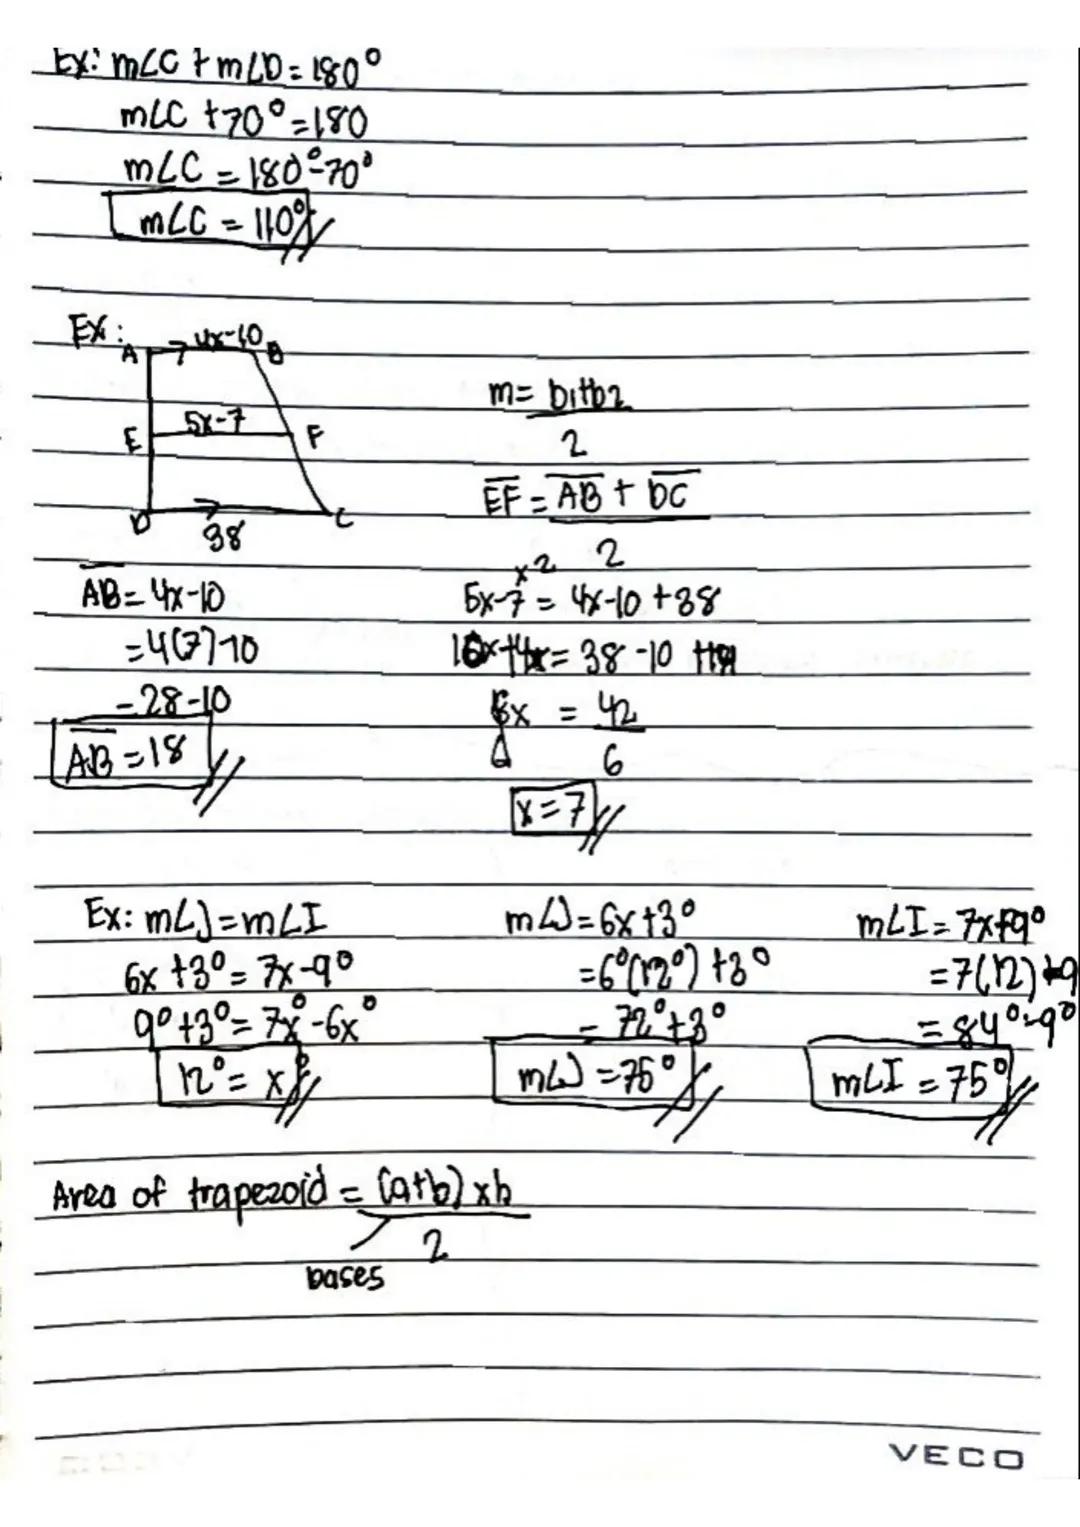 Ex: m∠C + m∠D = 180°
m∠C + 70° = 180
m∠C = 180° - 70°
m∠C = 110°
Ex:
A 4x-10 B
E 5x-7 F
D 38 C
m = b1+b2
2
EF = AB + DC
2
x2
5x-7 = 4x-10 + 38
= 38 - 10 + 14
6x = 42
6 6
x = 7
AB = 4x-10
= 4(7)-10
= 28-10
AB = 18
Ex: m∠J = m∠I
6x + 3° = 7x - 9°
9° + 3° = 7x° - 6x°
12° = x°
m∠J = 6x + 3°
= 6°(12°) + 3°
= 72° + 3°
m∠J = 75°
m∠I = 7x+9°
= 7(12) + 9
= 84° - 9°
m∠I = 75°
Area of trapezoid = (a+b) x h
2
bases
VECO